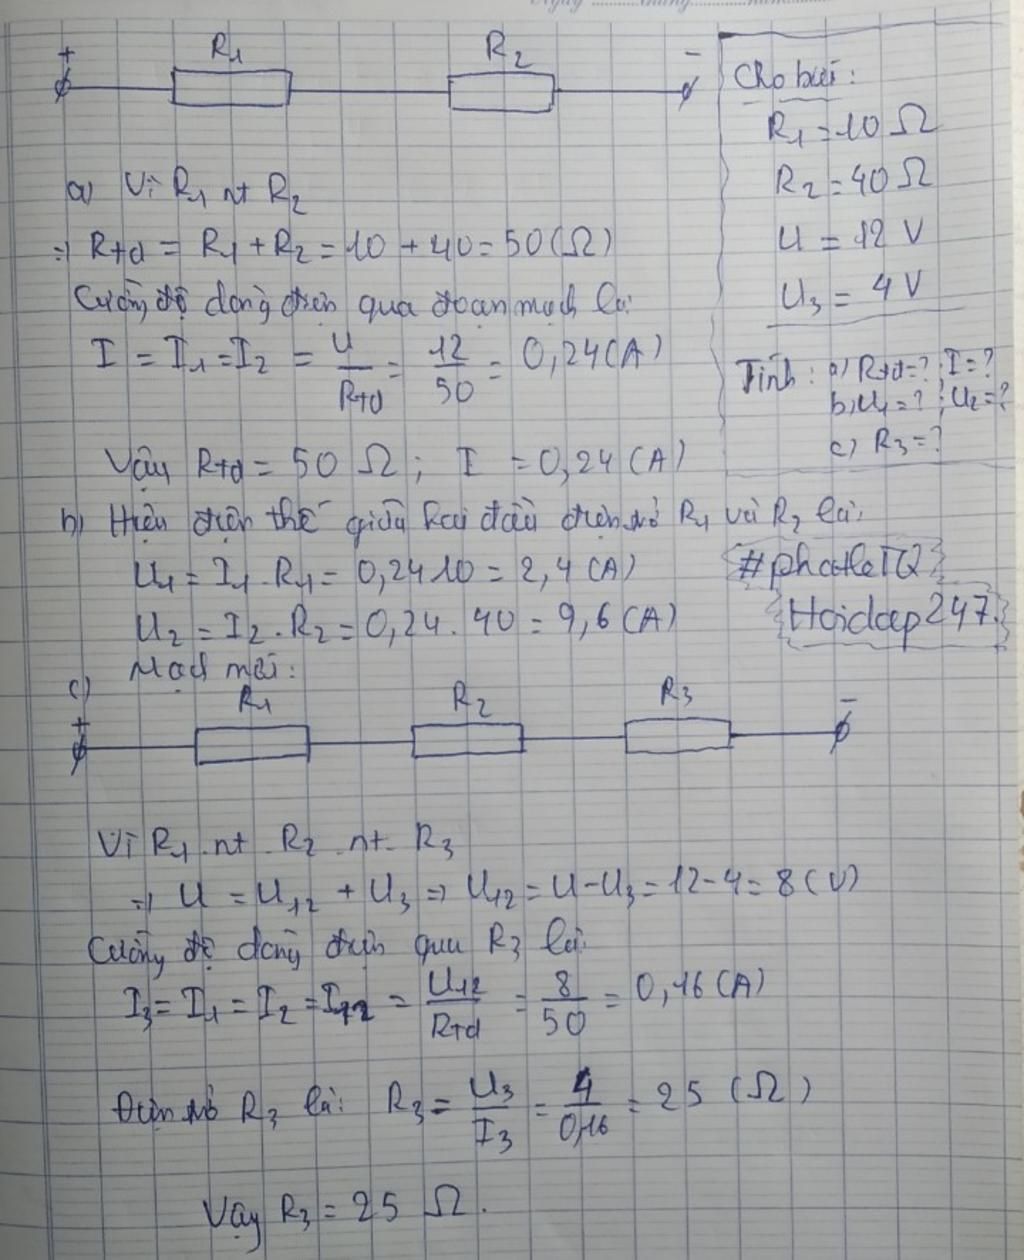 + R1 R2 -
Cho biết:
R1 = 10 Ω
R2 = 40 Ω
U = 12 V
U3 = 4 V
Tính: a) Rtđ=? ; I=?
b) U1 = ? ; U2 = ?
c) R3 = ?
a) Vì R1 nt R2
=> Rtđ = R1 + R2 = 10 + 40 = 50 (Ω)
Cường độ dòng điện qua đoạn mạch là:
I = I1 = I2 = U/Rtđ = 12/50 = 0,24 (A)
Vậy Rtđ = 50 Ω ; I = 0,24 (A)
b) Hiệu điện thế giữa hai đầu điện trở R1 và R2 là:
U1 = I1 . R1 = 0,24.10 = 2,4 (A)
U2 = I2 . R2 = 0,24 . 40 = 9,6 (A)
#phatleTQ
Hoidap247.
c) Mạch mới:
+ R1 R2 R3 -
Vì R1 nt R2 nt R3
=> U = U12 + U3 => U12 = U - U3 = 12 - 4 = 8 (V)
Cường độ dòng điện qua R3 là:
I3 = I1 = I2 = I12 = U12/Rtđ = 8/50 = 0,16 (A)
Điện trở R3 là: R3 = U3/I3 = 4/0,16 = 25 (Ω)
Vậy R3 = 25 Ω.